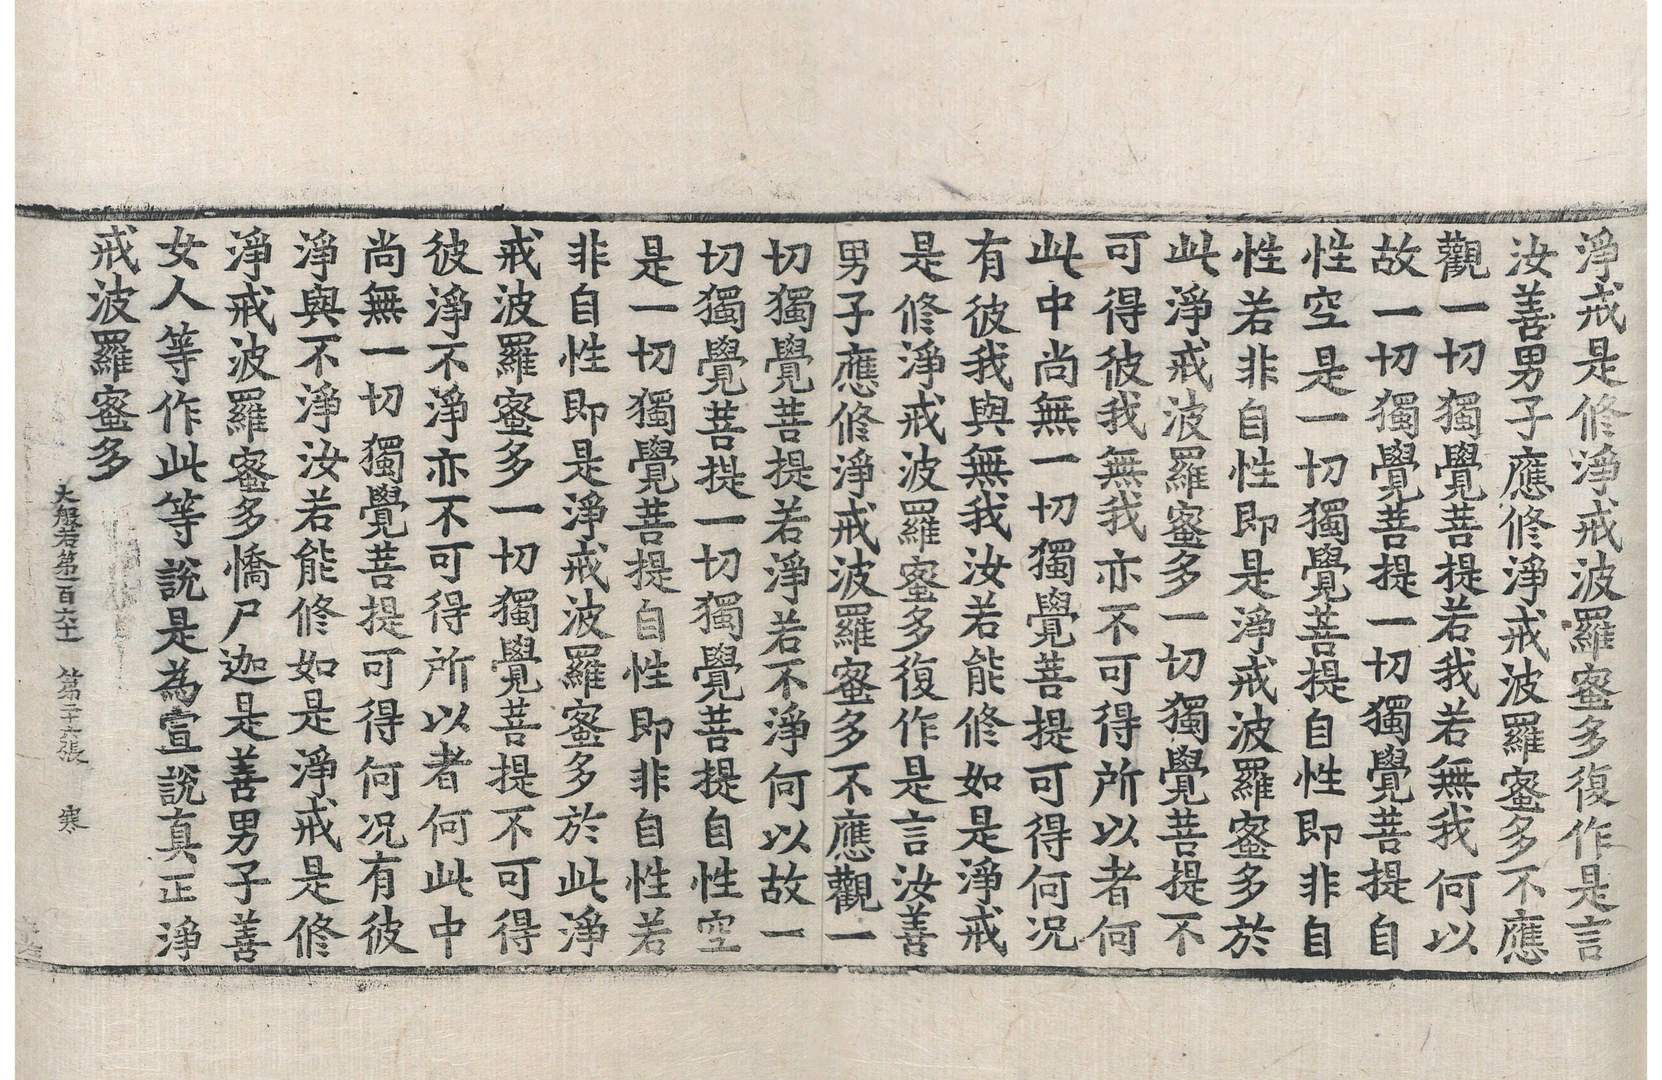 淨戒是修淨戒波羅蜜多復作是言
汝善男子應修淨戒波羅蜜多不應
觀一切獨覺菩提若我若無我何以
故一切獨覺菩提一切獨覺菩提自
性空是一切獨覺菩提自性即非自
性若非自性即是淨戒波羅蜜多於
此淨戒波羅蜜多一切獨覺菩提不
可得彼我無我亦不可得所以者何
此中尚無一切獨覺菩提可得何况
有彼我與無我汝若能修如是淨戒
是修淨戒波羅蜜多復作是言汝善
男子應修淨戒波羅蜜多不應觀一
切獨覺菩提若淨若不淨何以故一
切獨覺菩提一切獨覺菩提自性空
是一切獨覺菩提自性即非自性若
非自性即是淨戒波羅蜜多於此淨
戒波羅蜜多一切獨覺菩提不可得
彼淨不淨亦不可得所以者何此中
尚無一切獨覺菩提可得何况有彼
淨與不淨汝若能修如是淨戒是修
淨戒波羅蜜多憍尸迦是善男子善
女人等作此等說是為宣說真正淨
戒波羅蜜多
大般若第一百六十一 第二十六張 寒